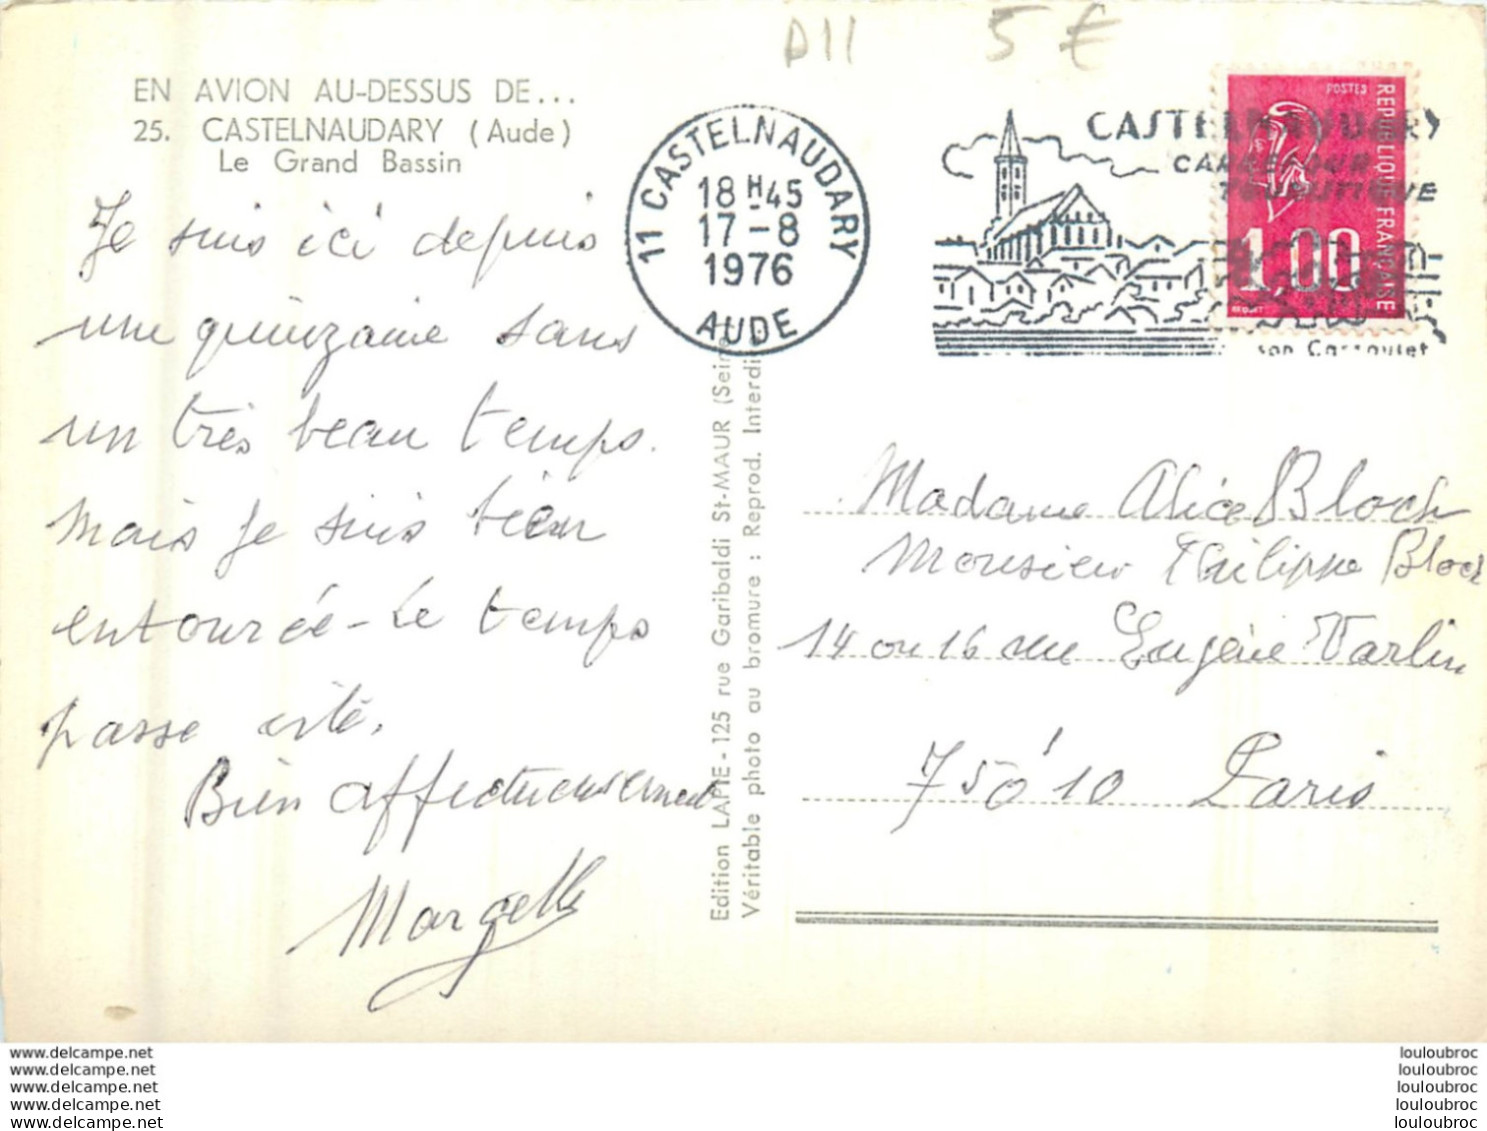 D11 5 €
EN AVION AU-DESSUS DE...
25. CASTELNAUDARY (Aude)
Le Grand Bassin
11 CASTELNAUDARY
18 H 45
17-8
1976
AUDE
CASTELNAUDARY
CARREFOUR
TOURISTIQUE
son Cassoulet
POSTES
REPUBLIQUE FRANÇAISE
1,00
Je suis ici depuis
une quinzaine sans
un très beau temps.
Mais je suis bien
entourée - Le temps
passe vite.
Bien affectueusement
Marcelle
Edition LAPIE - 125 rue Garibaldi St-MAUR (Seine
Véritable photo au bromure : Reprod. Interdi
Madame Alice Bloch
Monsieur Philippe Bloch
14 ou 16 rue Eugène Varlin
75010 Paris
www.delcampe.net
www.delcampe.net
www.delcampe.net
www.delcampe.net
www.delcampe.net
louloubroc
louloubroc
louloubroc
louloubroc
louloubroc